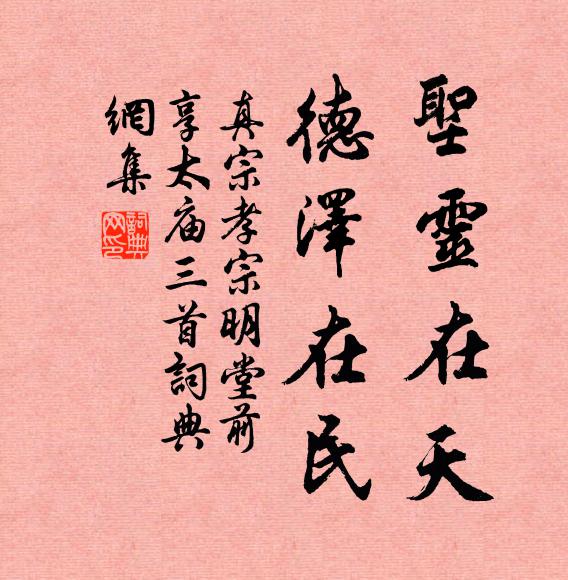 聖靈在天
德澤在民
真宗孝宗明堂前
享太庙三首詞典
網集
詞典网印